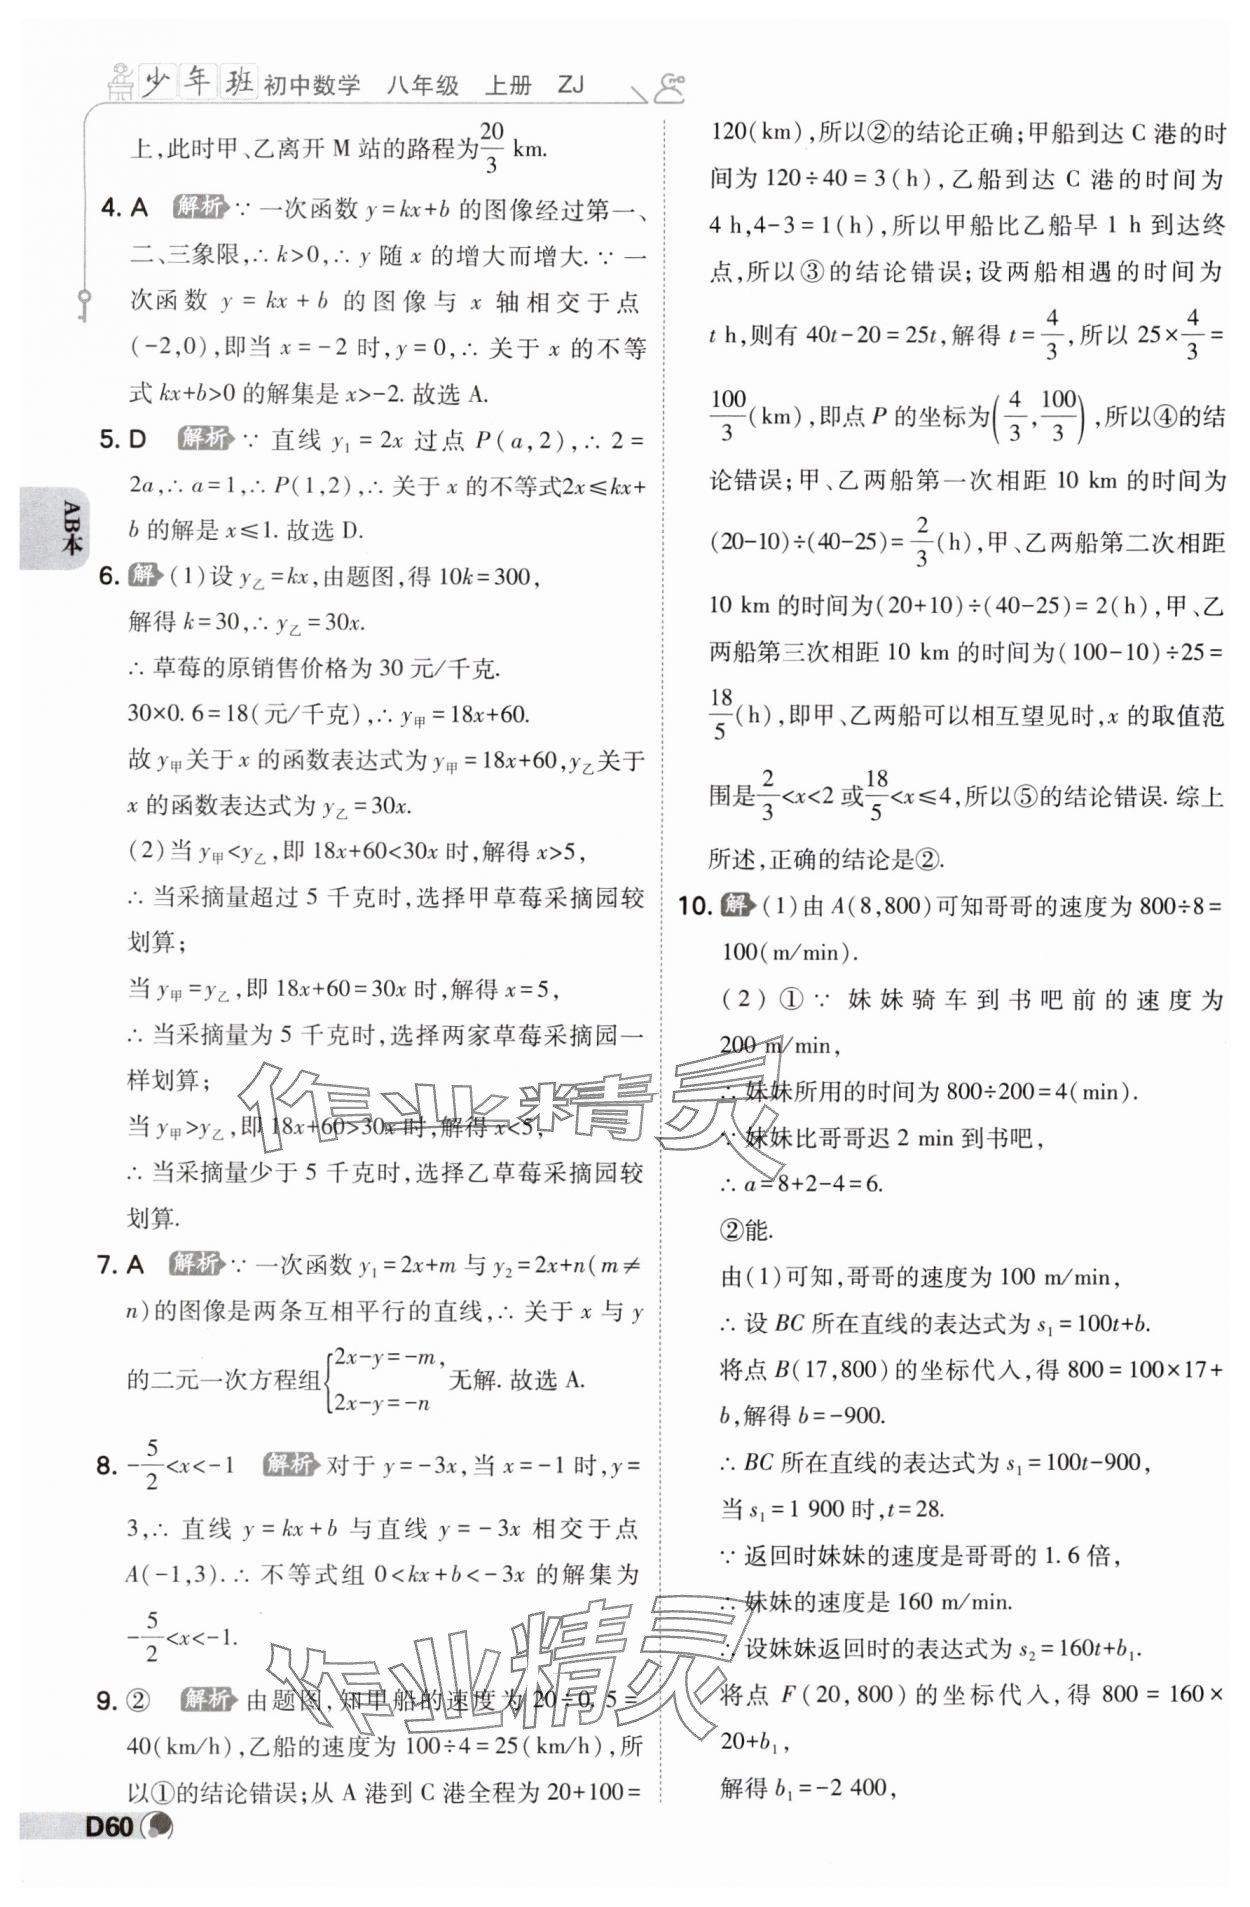 少年班 初中数学 八年级 上册 ZJ
上,此时甲、乙离开 M 站的路程为20/3 km.
4. A 解析 ∵ 一次函数 y=kx+b 的图像经过第一、
二、三象限,∴ k>0,∴ y 随 x 的增大而增大.∵ 一
次函数 y=kx+b 的图像与 x 轴相交于点
(-2,0),即当 x=-2 时,y=0,∴ 关于 x 的不等
式 kx+b>0 的解集是 x>-2. 故选 A.
5. D 解析 ∵ 直线 y₁=2x 过点 P(a,2),∴ 2=
2a,∴ a=1,∴ P(1,2),∴ 关于 x 的不等式2x≤kx+
b 的解是 x≤1. 故选 D.
6. 解 (1)设 y乙=kx,由题图,得 10k=300,
解得 k=30,∴ y乙=30x.
∴ 草莓的原销售价格为 30 元/千克.
30×0.6=18(元/千克),∴ y甲=18x+60.
故 y甲关于 x 的函数表达式为 y甲=18x+60,y乙关于
x 的函数表达式为 y乙=30x.
(2)当 y甲<y乙,即 18x+60<30x 时,解得 x>5,
∴ 当采摘量超过 5 千克时,选择甲草莓采摘园较
划算;
当 y甲=y乙,即 18x+60=30x 时,解得 x=5,
∴ 当采摘量为 5 千克时,选择两家草莓采摘园一
样划算;
当 y甲>y乙,即 18x+60>30x 时,解得 x<5,
∴ 当采摘量少于 5 千克时,选择乙草莓采摘园较
划算.
7. A 解析 ∵ 一次函数 y₁=2x+m 与 y₂=2x+n(m≠
n)的图像是两条互相平行的直线,∴ 关于 x 与 y
的二元一次方程组{2x-y=-m, 2x-y=-n 无解. 故选 A.
8. -5/2<x<-1 解析 对于 y=-3x,当 x=-1 时,y=
3,∴ 直线 y=kx+b 与直线 y=-3x 相交于点
A(-1,3).∴ 不等式组 0<kx+b<-3x 的解集为
-5/2<x<-1.
9. ② 解析 由题图,知甲船的速度为 20÷0.5=
40(km/h),乙船的速度为 100÷4=25(km/h),所
以①的结论错误;从 A 港到 C 港全程为 20+100=
AB本
D60
120(km),所以②的结论正确;甲船到达 C 港的时
间为 120÷40=3(h),乙船到达 C 港的时间为
4 h,4-3=1(h),所以甲船比乙船早 1 h 到达终
点,所以③的结论错误;设两船相遇的时间为
t h,则有 40t-20=25t,解得 t=4/3,所以 25×4/3=
100/3(km),即点 P 的坐标为(4/3,100/3),所以④的结
论错误;甲、乙两船第一次相距 10 km 的时间为
(20-10)÷(40-25)=2/3(h),甲、乙两船第二次相距
10 km 的时间为(20+10)÷(40-25)=2(h),甲、乙
两船第三次相距 10 km 的时间为(100-10)÷25=
18/5(h),即甲、乙两船可以相互望见时,x 的取值范
围是2/3<x<2 或18/5<x≤4,所以⑤的结论错误. 综上
所述,正确的结论是②.
10. 解 (1)由 A(8,800)可知哥哥的速度为 800÷8=
100(m/min).
(2)①∵ 妹妹骑车到书吧前的速度为
200 m/min,
∴ 妹妹所用的时间为 800÷200=4(min).
∵ 妹妹比哥哥迟 2 min 到书吧,
∴ a=8+2-4=6.
②能.
由(1)可知,哥哥的速度为 100 m/min,
∴ 设 BC 所在直线的表达式为 s₁=100t+b.
将点 B(17,800)的坐标代入,得 800=100×17+
b,解得 b=-900.
∴ BC 所在直线的表达式为 s₁=100t-900,
当 s₁=1 900 时,t=28.
∵ 返回时妹妹的速度是哥哥的 1.6 倍,
∴ 妹妹的速度是 160 m/min.
∴ 设妹妹返回时的表达式为 s₂=160t+b₁.
将点 F(20,800)的坐标代入,得 800=160×
20+b₁,
解得 b₁=-2 400,
作业精灵
作业精灵